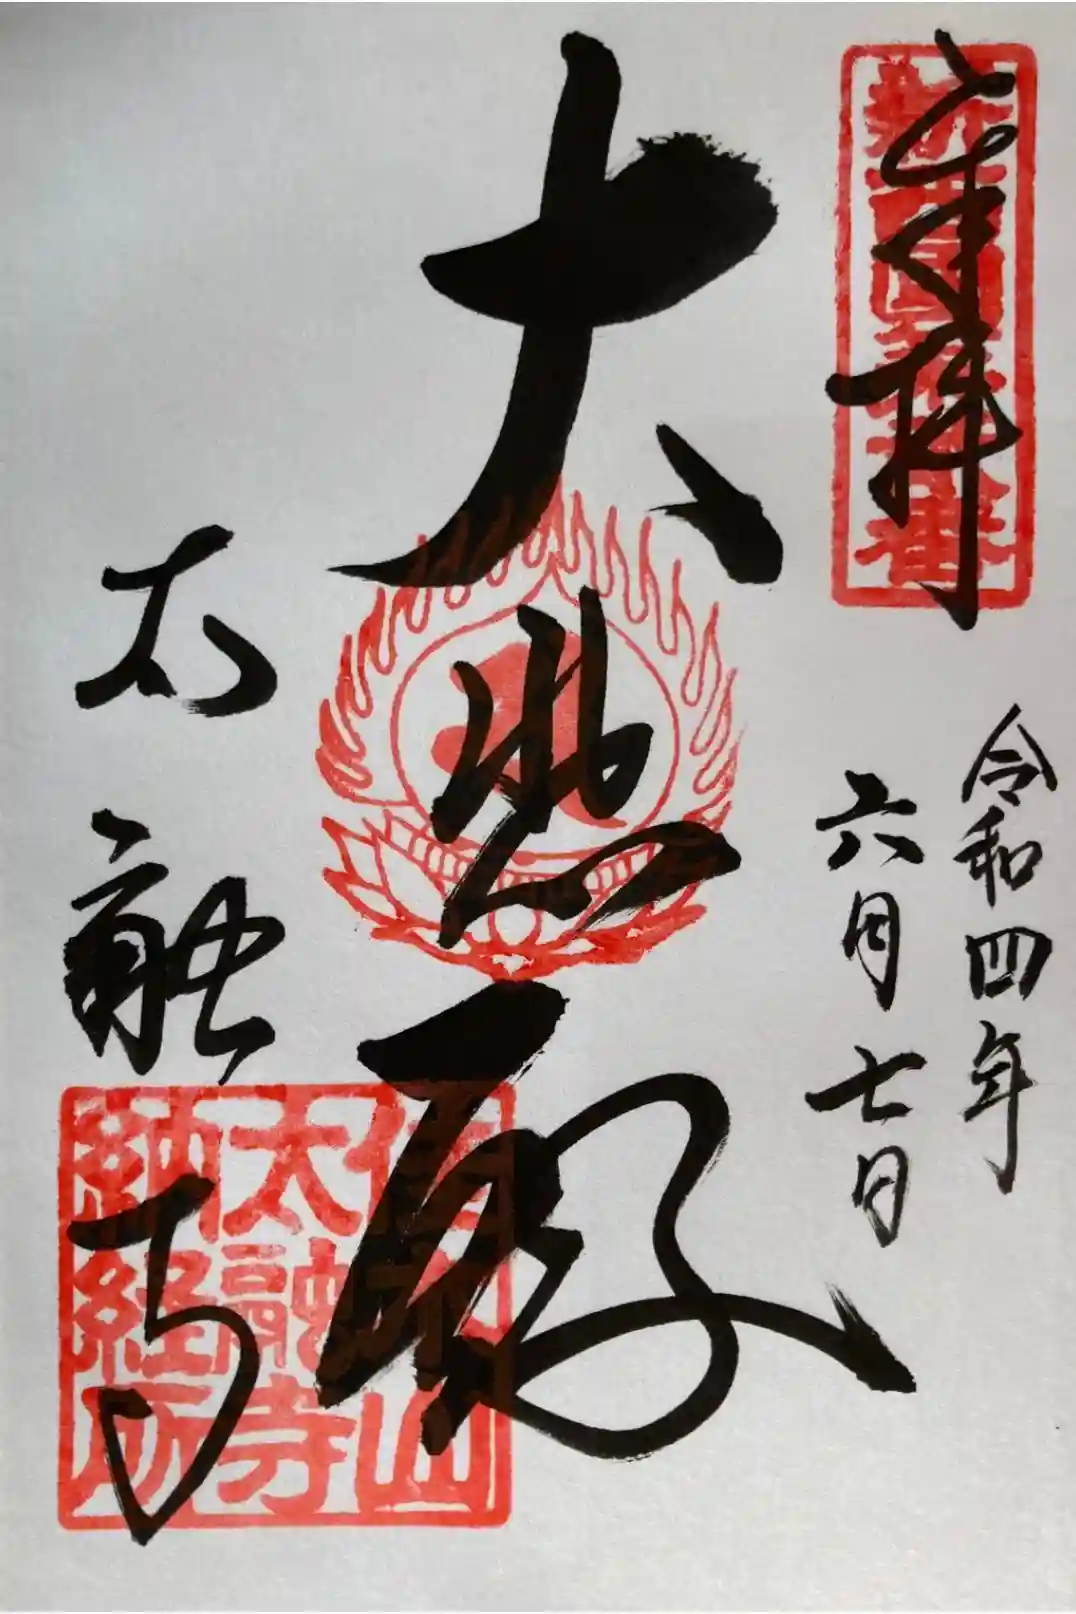 奉拝
令和四年
六月七日
大悲殿
太融寺
佳木山
太融寺
納経所